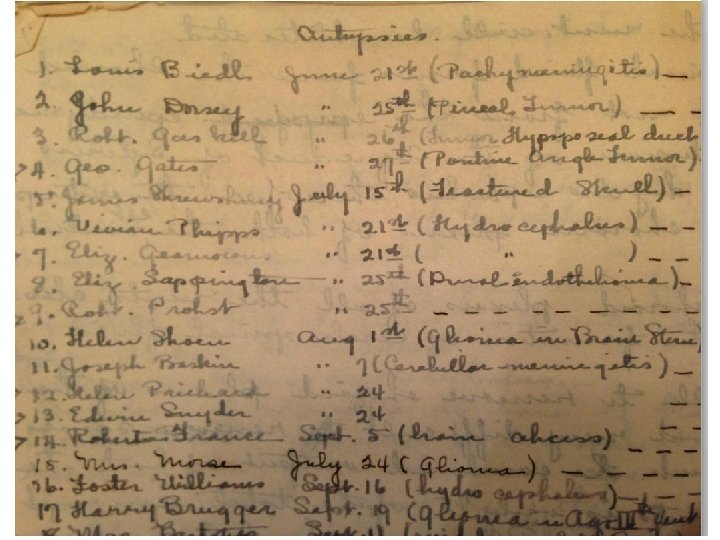 Autopsies.
1. Louis Biedl June 21st (Pachymeningitis) —
2. John Dorsey " 25th (Pineal Tumor) — —
3 Robt. Gaskill " 26th (Tumor Hypoposeal duct
4. Geo. Gates " 27th (Pontine Angle Tumor)
5. James Shrewsbury July 15th (Fractured Skull) —
6. Vivian Phipps " 21st (Hydrocephalus) — —
7. Eliz. " 21st ( " ) — —
8. Eliz. Sappington " 25th (Dural endothelioma) —
9. Robt. Probst " 25th — — — — — — —
10. Helen Shoen Aug 1st (Glioma in Brain Stem)
11. Joseph Baskin " 7 (Cerebellar meningitis) —
12. Helen Prichard " 24 — —
13. Edwin Snyder " 24 — —
14. Roberta France Sept. 5 (brain abcess) — — —
15. Mrs. Morse July 24 (Glioma) — — — —
16. Foster Williams Sept. 16 (hydrocephalus) — — —
17 Harry Brugger Sept. 19 (Glioma in Aq + IVth Vent